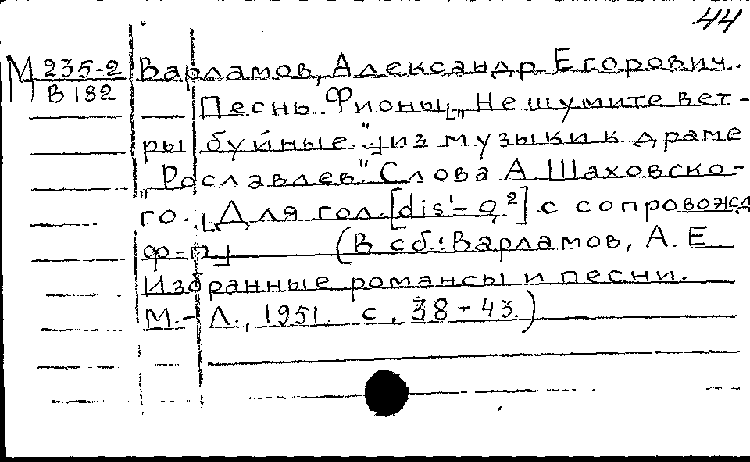 44
М 235-2 Варламов, Александр Егорович.
В 182
Песнь Фионы „Не шумите вет-
ры буйные" [из музыки к драме
„Рославлев" Слова А. Шаховско-
го. [Для гол. [dis¹-a²] с сопровожд
ф-п.] (В сб: Варламов, А. Е
Избранные романсы и песни.
М.-Л., 1951. с. 38-43.)